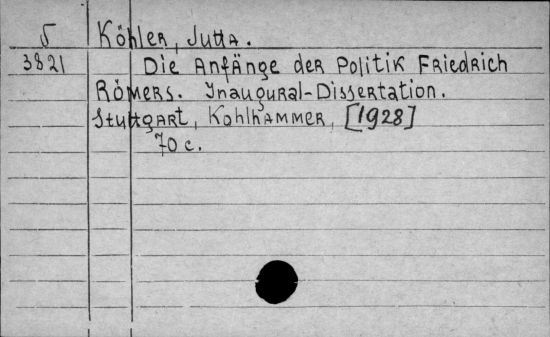 5 Köhler, Jutta.
3821 Die Anfänge der Politik Friedrich
Römers. Inaugural-Dissertation.
Stuttgart, Kohlhammer, [1928]
70 c.